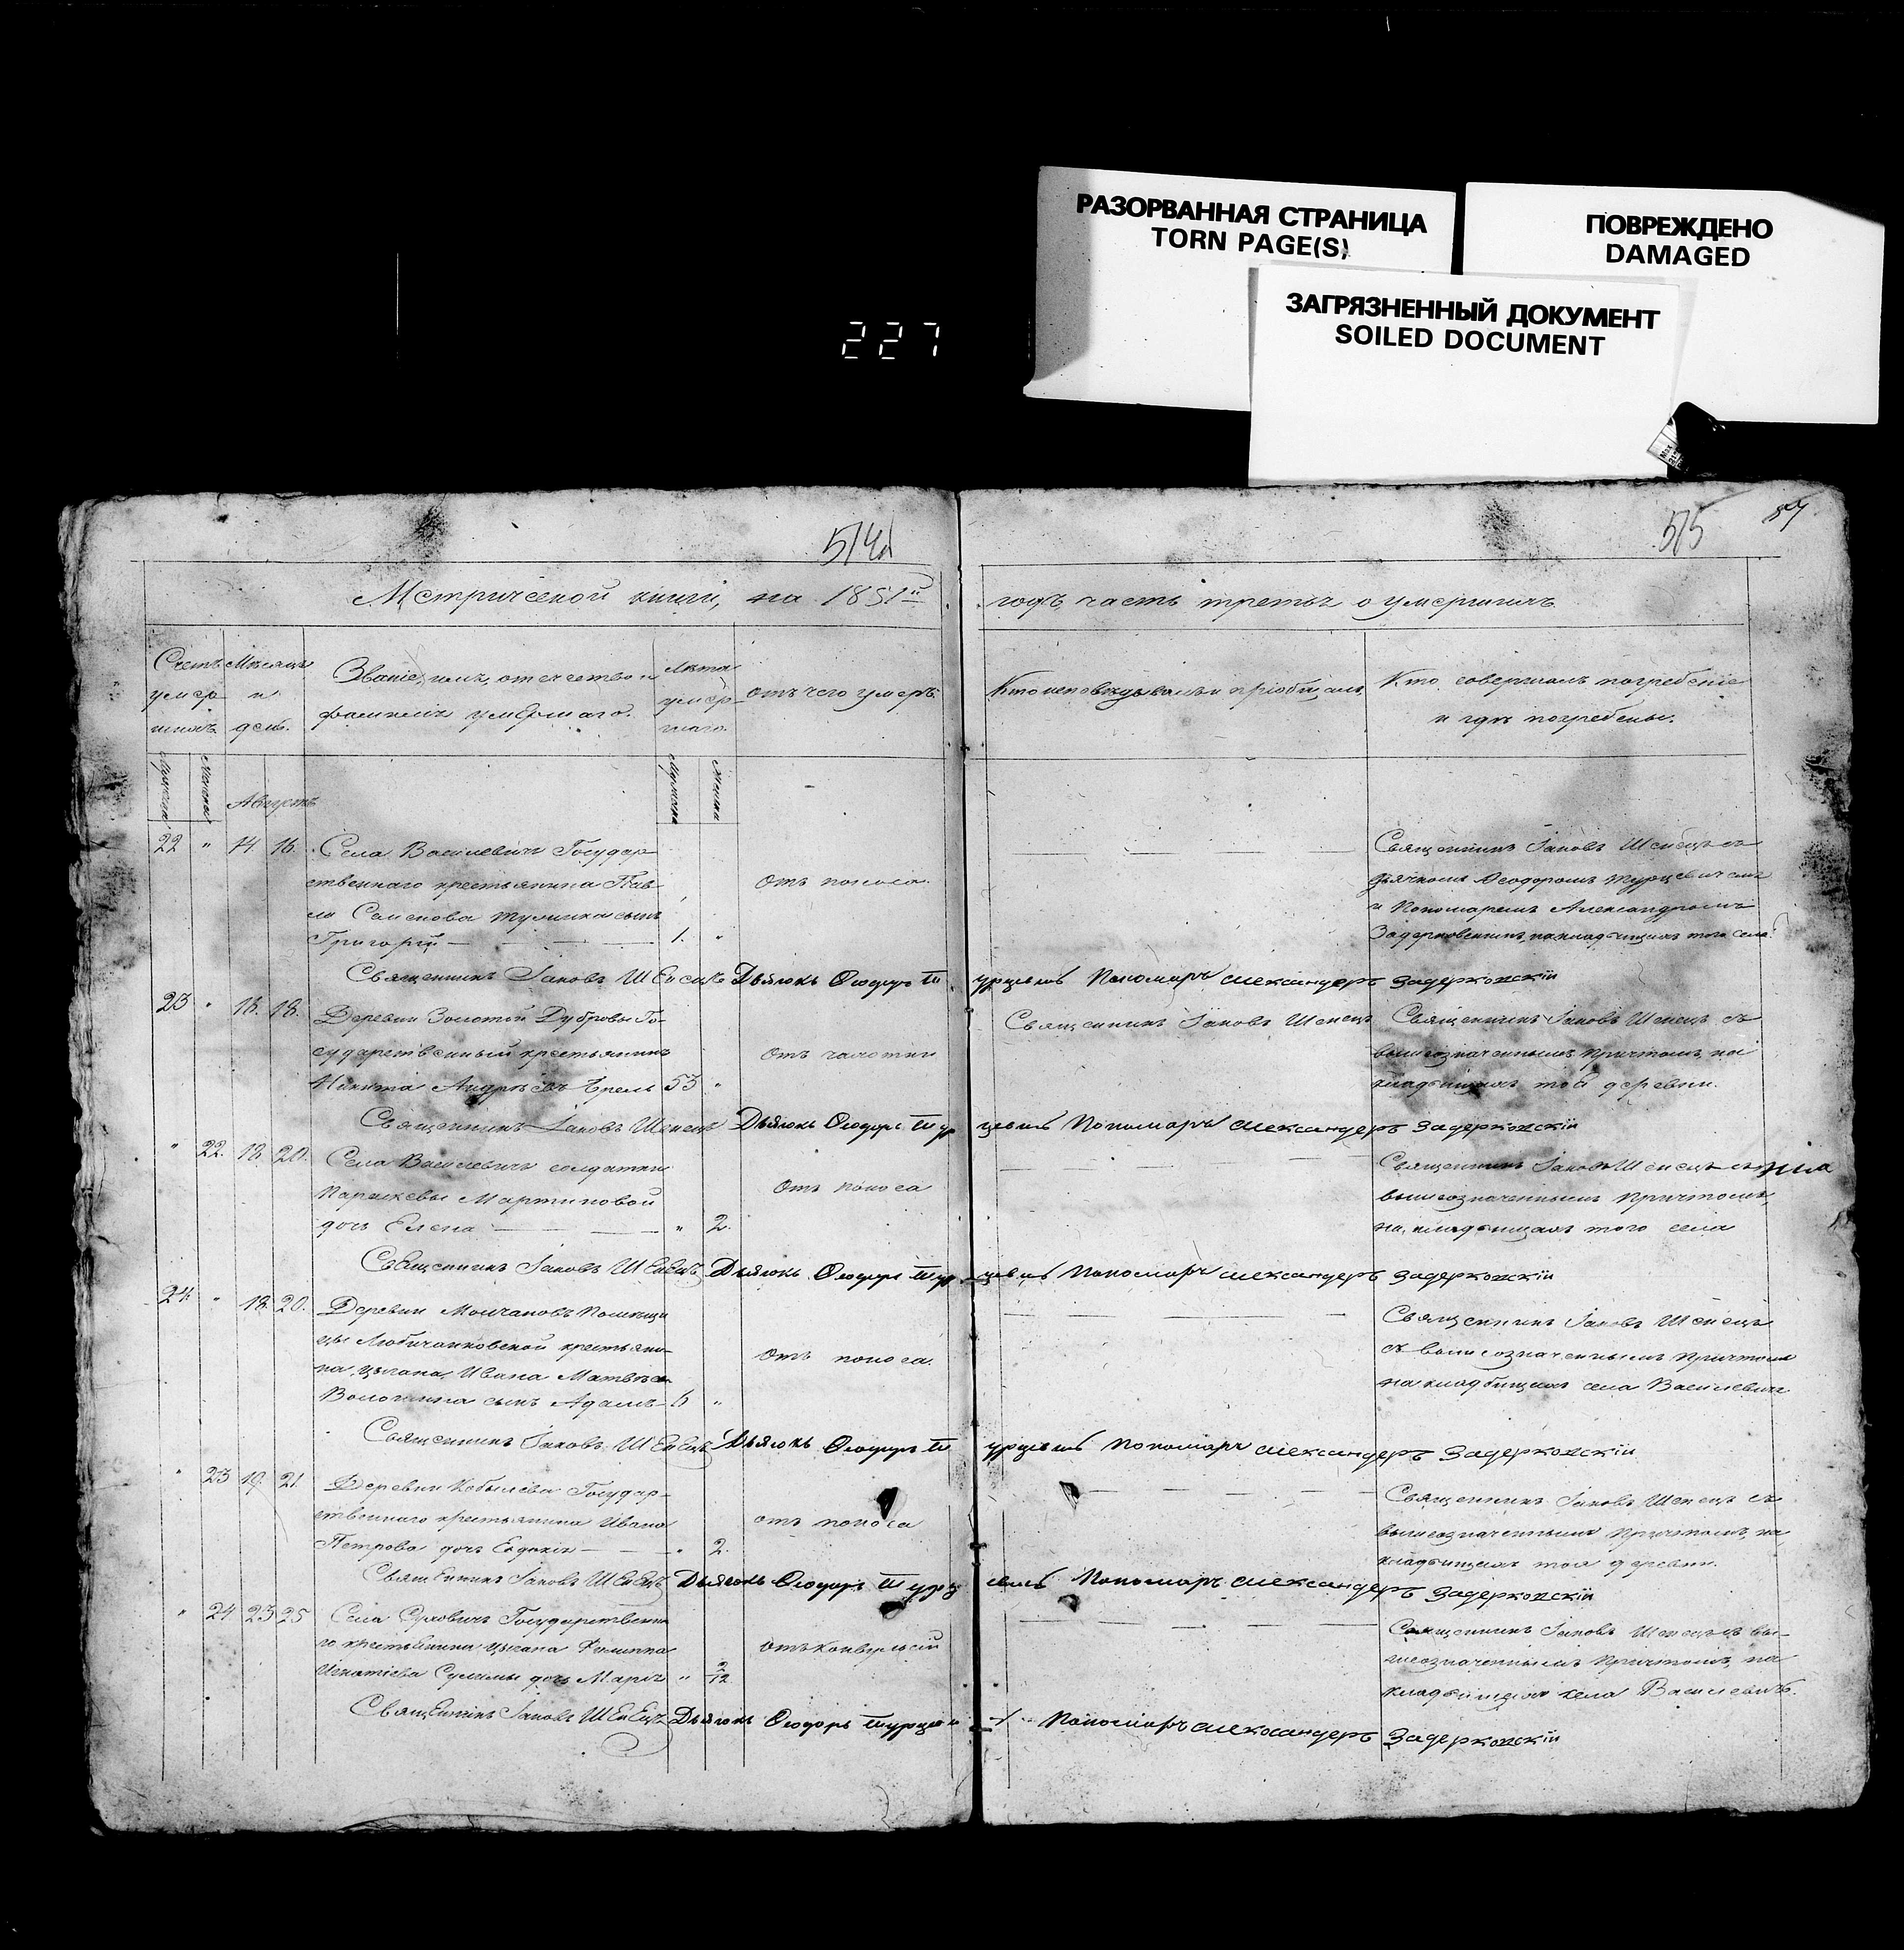 РАЗОРВАННАЯ СТРАНИЦА
TORN PAGE(S)
ПОВРЕЖДЕНО
DAMAGED
ЗАГРЯЗНЕННЫЙ ДОКУМЕНТ
SOILED DOCUMENT
227
514
515
Метрической книги, на 1851й
годъ часть третья о умершихъ
Счетъ умер шихъ
Мѣсяцъ и день.
Званіе, имя, отечество и
фамилія умершаго.
Лѣта умер- шаго.
отъ чего умеръ.
Кто исповѣдывалъ и пріобщалъ
Кто совершалъ погребеніе
и гдѣ погребены.
Августъ
22 " 14 16. Села Василевичъ Государ-
ственнаго крестьянина Пав-
ла Семенова сынъ
Григорій — 1. "
отъ поноса.
Священникъ Іаковъ Шепецъ съ
дьячкомъ Ѳеодоромъ Турцевичемъ
и Пономаремъ Александромъ
на кладбищахъ того села.
Священникъ Іаковъ Дьячокъ Ѳеодоръ Турцевичъ Пономарь Александеръ
23 " 16. 18. Деревни Золотой Дубровы Го-
сударственный крестьянинъ
Никита Андреевъ 53 "
отъ чахотки
Священникъ Іаковъ Шепецъ
Священникъ Іаковъ Шепецъ съ
вышеозначеннымъ причтомъ, на
кладбищахъ той деревни.
Священникъ Іаковъ Шепецъ Дьячокъ Ѳеодоръ Турцевичъ Пономарь Александеръ
" 22. 18. 20. Села Василевичъ солдатки
Параскевы Мартиновой
дочь Елена — " 2.
отъ поноса
Священникъ Іаковъ Шепецъ съ
вышеозначеннымъ причтомъ,
на кладбищахъ того села
Священникъ Іаковъ Шепецъ Дьячокъ Ѳеодоръ Турцевичъ Пономарь Александеръ
24. " 18. 20. Деревни Молчановъ Помѣщи
цы крестьяни-
на, цыгана, Ивана
сынъ Адамъ — 6 "
отъ поноса.
Священникъ Іаковъ Шепецъ
съ вышеозначеннымъ причтомъ
на кладбищахъ села Василевичъ
Священникъ Іаковъ Шепецъ Дьячокъ Ѳеодоръ Турцевичъ Пономарь Александеръ
" 23 19. 21. Деревни Государ-
ственнаго крестьянина Ивана
Петрова дочь Евдокія — " 2.
отъ поноса
Священникъ Іаковъ Шепецъ съ
вышеозначеннымъ причтомъ, на
кладбищахъ тоя деревни.
Священникъ Іаковъ Шепецъ Дьячокъ Ѳеодоръ Турцевичъ Пономарь Александеръ
" 24 23 25 Села Государственна
го крестьянина цыгана Филиппа
Игнатіева дочь Марія " 2/12
Священникъ Іаковъ Шепецъ съ вы-
шеозначеннымъ причтомъ, на
кладбищахъ села Василевичъ.
Священникъ Іаковъ Шепецъ Дьячокъ Ѳеодоръ Пономарь Александеръ